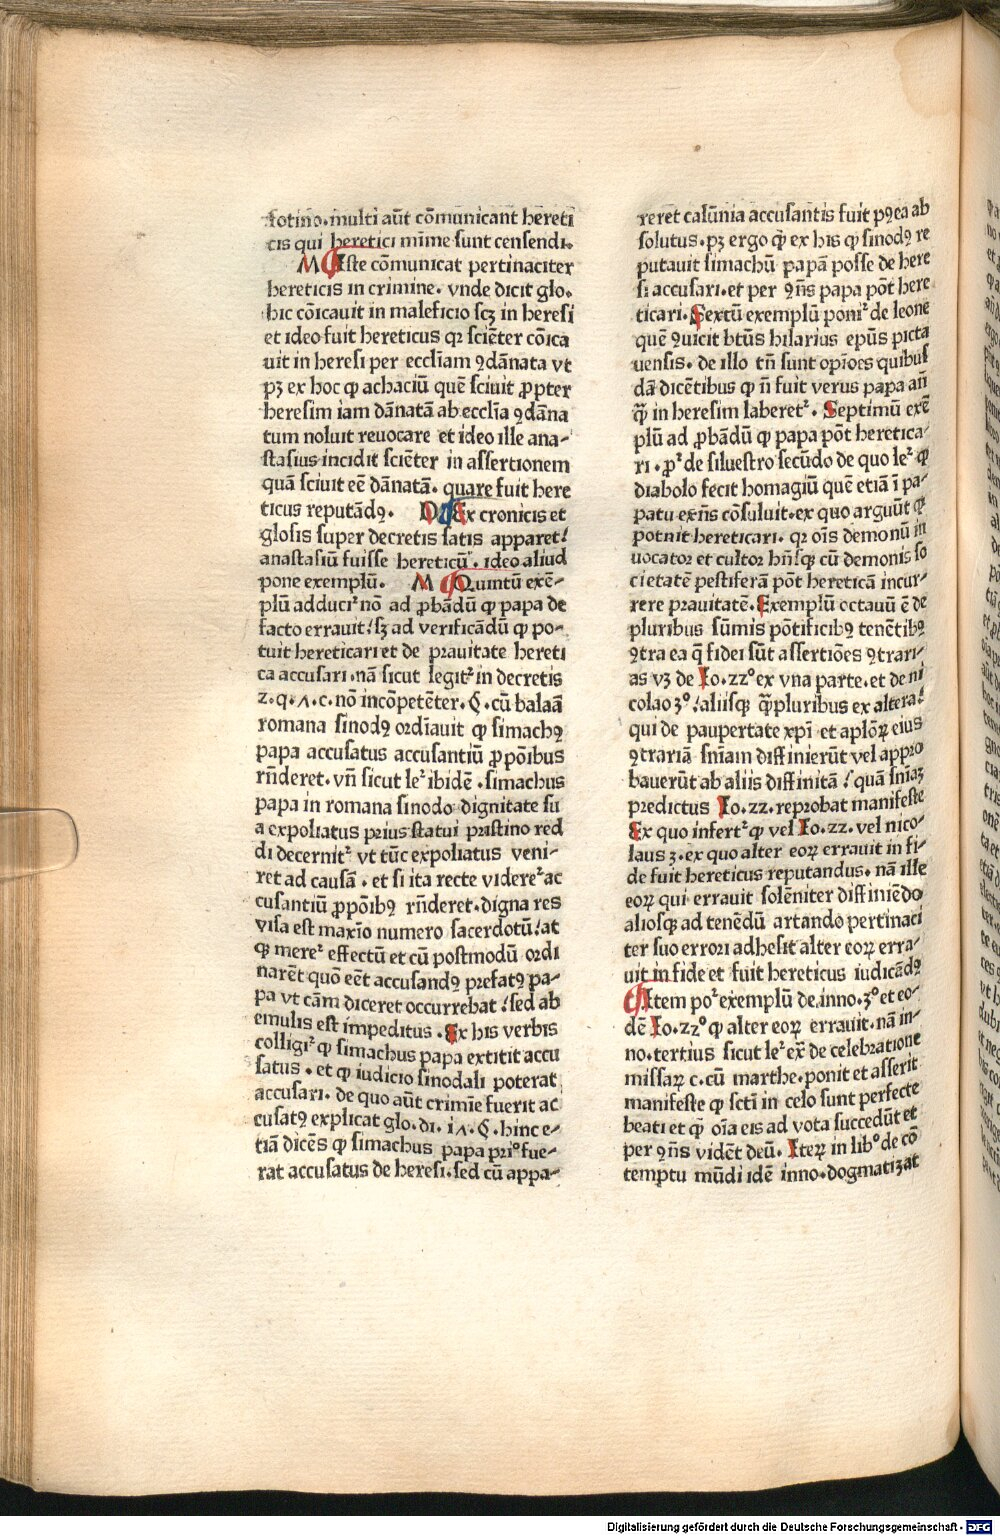 fotino. multi aūt cōmunicant hereti
cis qui heretici mīme sunt censendi.
M ¶ Iste cōmunicat pertinaciter
hereticis in crimine. vnde dicit glo.
hic cōicauit in maleficio scꝫ in heresi
et ideo fuit hereticus qꝛ sciēter cōica
uit in heresi per eccl̄iam ꝯdānata vt
pꝫ ex hoc ꝙ achaciū quē sciuit ꝓpter
heresim iam dānatā ab eccl̄ia ꝯdāna
tum noluit reuocare et ideo ille ana-
stasius incidit sciēter in assertionem
quā sciuit eē dānatā. quare fuit here
ticus reputādꝰ. D ¶ Ex cronicis et
glosis super decretis satis apparet/
anastasiū fuisse hereticū. ideo aliud
pone exemplū. M ¶ Quintū exē-
plū adduciꝛ nō ad ꝓbādū ꝙ papa de
facto errauit/ sꝫ ad verificādū ꝙ po-
tuit hereticari et de prauitate hereti
ca accusari. nā sicut legitꝛ in decretis
2. q. ʌ. c. nō incōpetēter. §. cū balaā
romana sinodꝰ ordīauit ꝙ simachꝰ
papa accusatus accusantiū ꝓpōibus
rn̄deret. vn̄ sicut leꝛ ibidē. simachus
papa in romana sinodo dignitate su
a expoliatus prius statui pristino red
di decernitꝛ vt tūc expoliatus veni-
ret ad causā. et si ita recte videreꝛ ac
cusantiū ꝓpōibꝰ rn̄deret. digna res
visa est maxīo numero sacerdotū/ at
ꝙ mereꝛ effectū et cū postmodū ordi
narēt quō eēt accusandꝰ prefatꝰ pa-
pa vt cām diceret occurrebat/ sed ab
emulis est impeditus. Ex his verbis
colligiꝛ ꝙ simachus papa extitit accu
satus. et ꝙ iudicio sinodali poterat
accusari. de quo aūt crimīe fuerit ac
cusatꝰ explicat glo. di. iʌ. §. hinc e-
tiā dicēs ꝙ simachus papa priᵒ fue-
rat accusatus de heresi. sed cū appa-
reret calūnia accusantis fuit pꝰea ab
solutus. pꝫ ergo ꝙ ex his ꝙ sinodꝰ re
putauit simachū papā posse de here
si accusari. et per ꝯn̄s papa pōt here
ticari. Sextū exemplū poniꝛ de leone
quē ꝯuicit btūs hilarius epūs picta
uensis. de illo tn̄ sunt opīoes quibus
dā dicētibus ꝙ n̄ fuit verus papa an̄
ꝙ̄ in heresim laberetꝛ. Septimū exē
plū ad ꝓbādū ꝙ papa pōt heretica-
ri. ꝓꝛ de siluestro secūdo de quo leꝛ ꝙ
diabolo fecit homagiū quē etiā ī pa-
patu exn̄s cōsuluit. ex quo arguūt ꝙ
potuit hereticari. qꝛ oīs demonū in
uocator et cultor hn̄sqꝫ cū demonis so
cietatē pestiferā pōt hereticā incur-
rere prauitatē. Exemplū octauū ē de
pluribus sūmis pōtificibꝰ tenētibꝰ
ꝯtra ea q̄ fidei sūt assertiōes ꝯtrari-
as vꝫ de Io. 22ᵒ ex vna parte. et de ni
colao 3ᵒ / aliisqꝫ ꝙ̄pluribus ex altera/
qui de paupertate xp̄i et aplōꝝ eius
ꝯtrariā sn̄iam diffinierūt vel appro
bauerūt ab aliis diffinitā / quā sn̄iaꝫ
predictus Io. 22. reprobat manifeste
Ex quo infertꝛ ꝙ vel Io. 22. vel nico-
laus 3. ex quo alter eoꝝ errauit in fi-
de fuit hereticus reputandus. nā ille
eoꝝ qui errauit solēniter diffiniēdo
aliosqꝫ ad tenēdū artando pertinaci
ter suo errori adhesit alter eoꝝ erra-
uit in fide et fuit hereticus iudicādꝰ
¶ Item poꝛ exemplū de. inno. 3ᵒ et eo-
dē Io. 22ᵒ ꝙ alter eoꝝ errauit. nā in-
no. tertius sicut leꝛ ex̄ de celebratione
missaꝝ c. cū marthe. ponit et asserit
manifeste ꝙ scti in celo sunt perfecte
beati et ꝙ oīa eis ad vota succedūt et
per ꝯn̄s vidēt deū. Iteꝝ in libᵒ de cō
temptu mūdi idē inno. dogmatizat
Digitalisierung gefördert durch die Deutsche Forschungsgemeinschaft - DFG